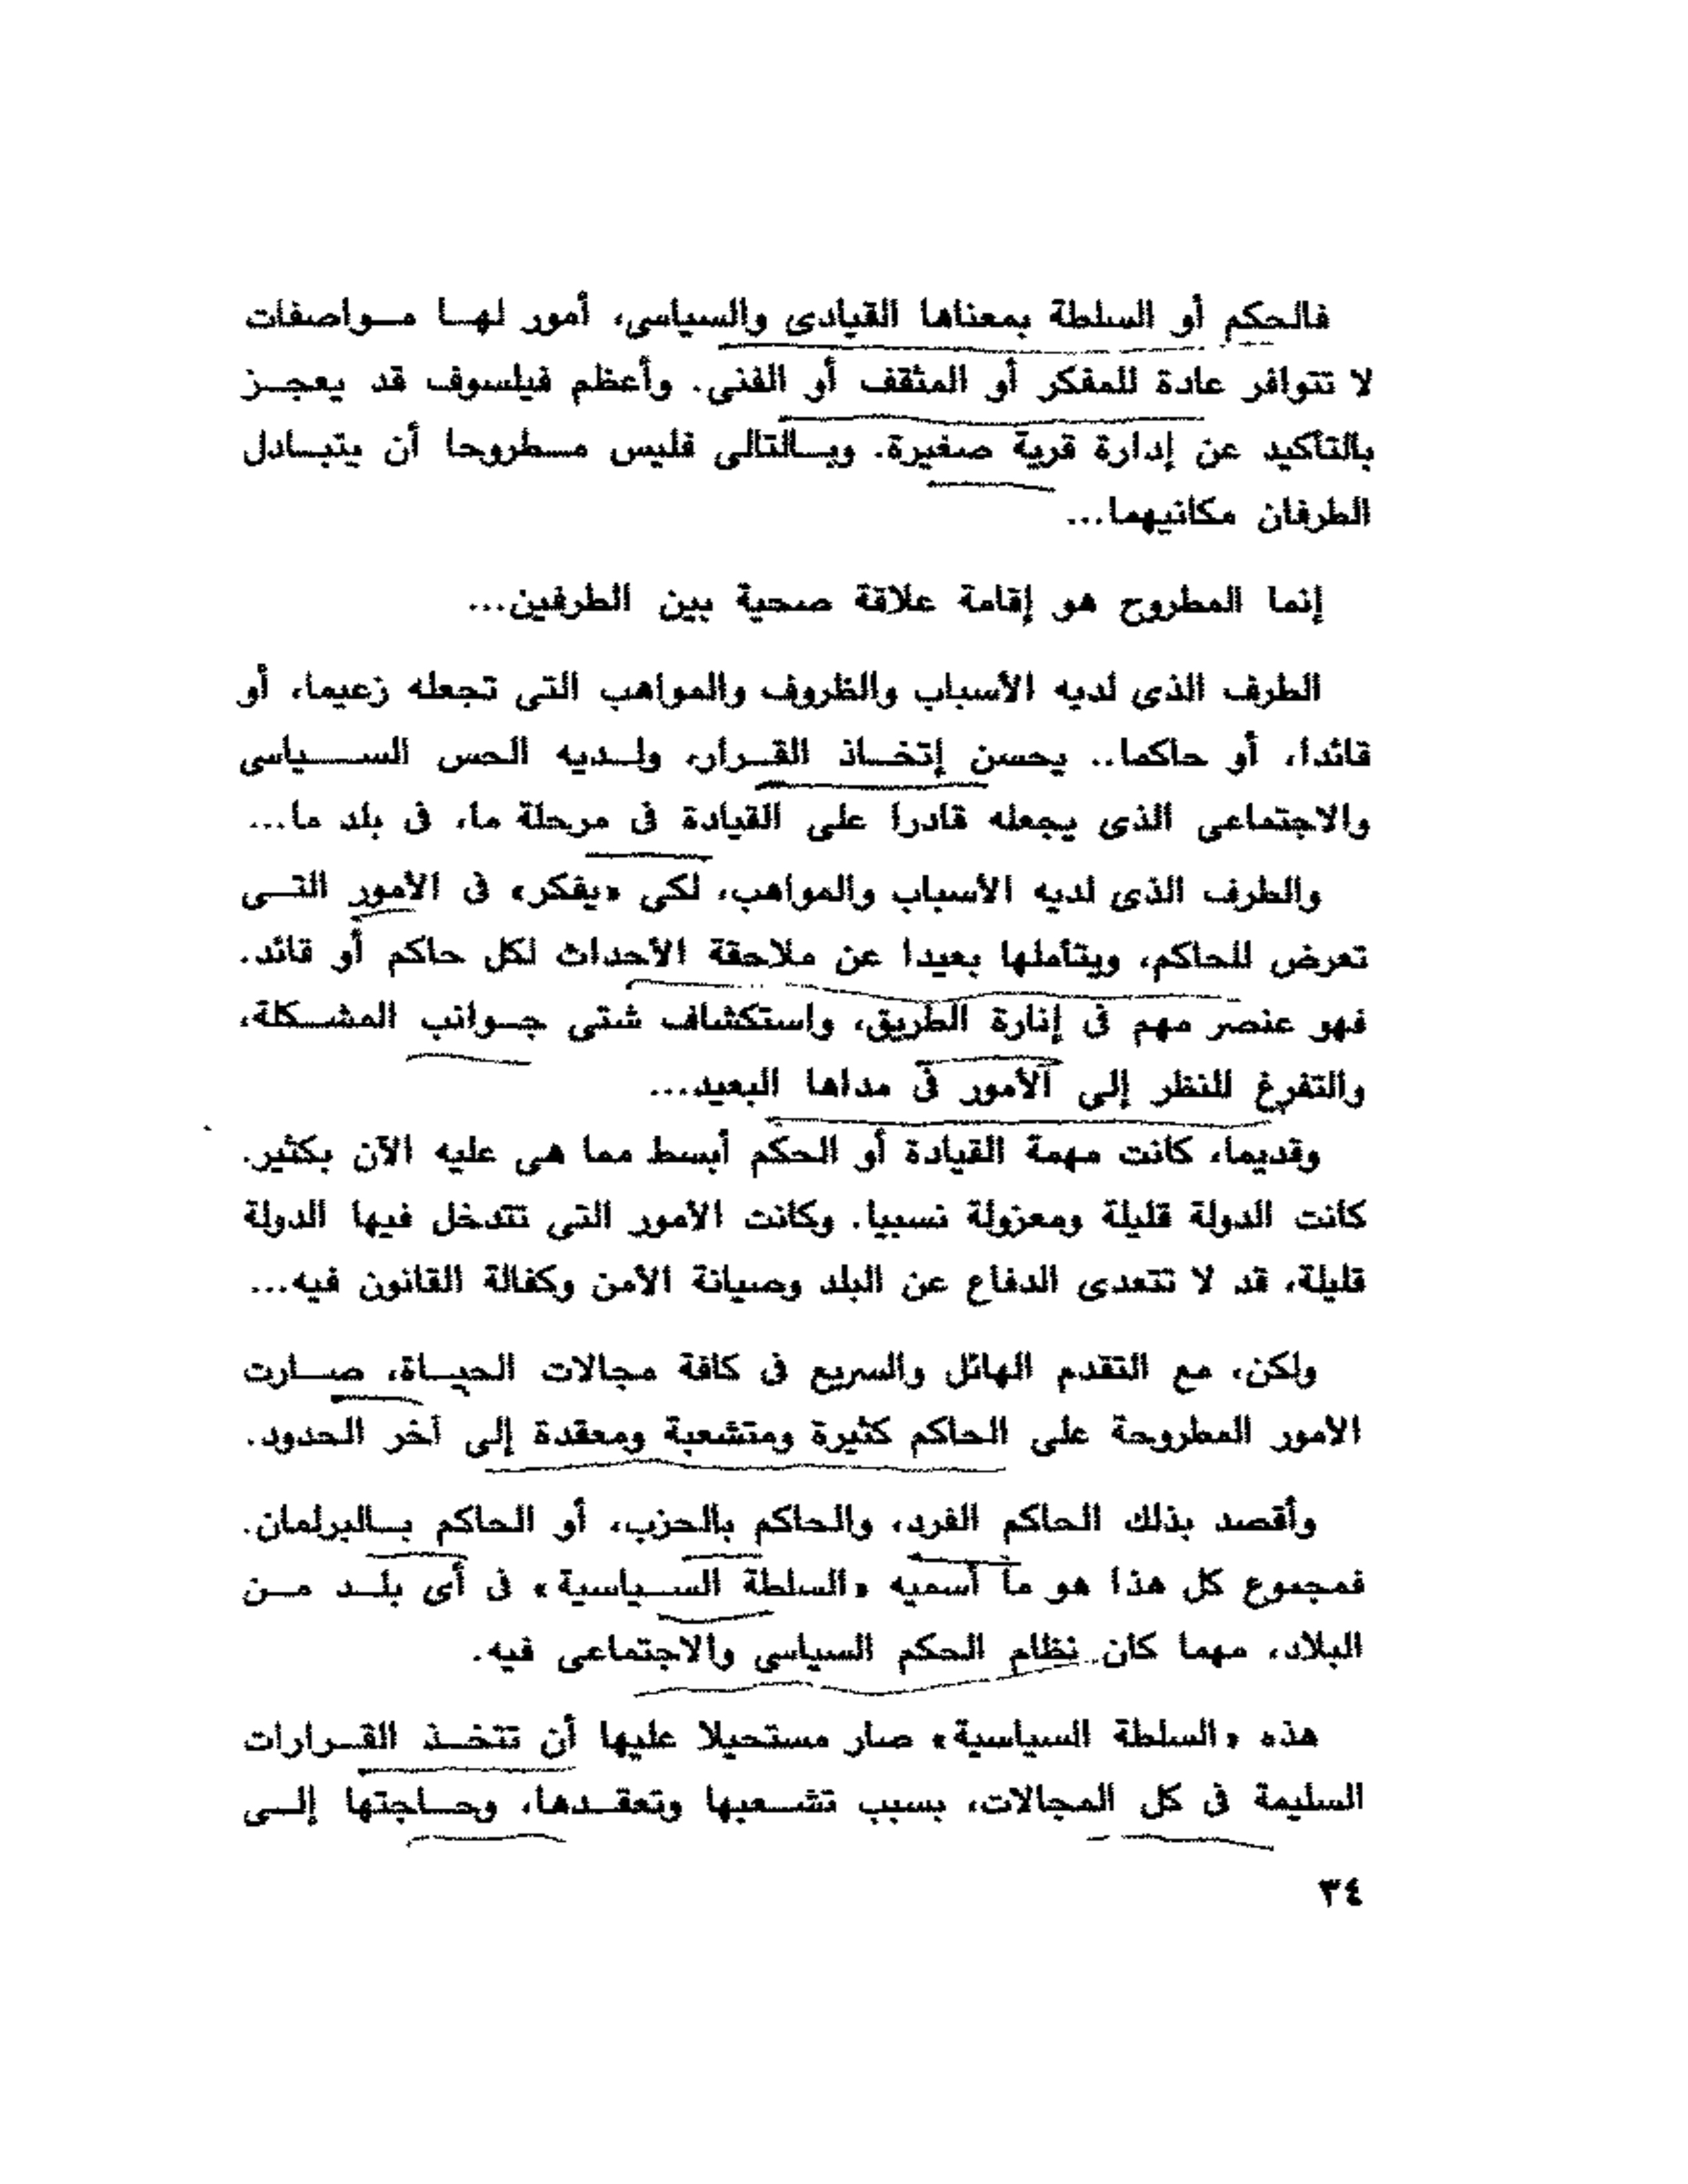 فالحكم أو السلطة بمعناها القيادى والسياسى، أمور لها مواصفات
لا تتوافر عادة للمفكر أو المثقف أو الفنى. وأعظم فيلسوف قد يعجز
بالتأكيد عن إدارة قرية صغيرة. وبالتالى فليس مطروحا أن يتبادل
الطرفان مكانيهما...
إنما المطروح هو إقامة علاقة صحية بين الطرفين...
الطرف الذى لديه الأسباب والظروف والمواهب التى تجعله زعيما، أو
قائدا، أو حاكما.. يحسن إتخاذ القرار، ولديه الحس السياسى
والاجتماعى الذى يجعله قادرا على القيادة فى مرحلة ما، فى بلد ما...
والطرف الذى لديه الأسباب والمواهب، لكى «يفكر» فى الأمور التى
تعرض للحاكم، ويتأملها بعيدا عن ملاحقة الأحداث لكل حاكم أو قائد.
فهو عنصر مهم فى إنارة الطريق، واستكشاف شتى جوانب المشكلة،
والتفرغ للنظر إلى الأمور فى مداها البعيد...
وقديما، كانت مهمة القيادة أو الحكم أبسط مما هى عليه الآن بكثير.
كانت الدولة قليلة ومعزولة نسبيا. وكانت الأمور التى تتدخل فيها الدولة
قليلة، قد لا تتعدى الدفاع عن البلد وصيانة الأمن وكفالة القانون فيه...
ولكن، مع التقدم الهائل والسريع فى كافة مجالات الحياة، صارت
الأمور المطروحة على الحاكم كثيرة ومتشعبة ومعقدة إلى آخر الحدود.
وأقصد بذلك الحاكم الفرد، والحاكم بالحزب، أو الحاكم بالبرلمان.
فمجموع كل هذا هو ما أسميه «السلطة السياسية» فى أى بلد من
البلاد، مهما كان نظام الحكم السياسى والاجتماعى فيه.
هذه «السلطة السياسية» صار مستحيلا عليها أن تتخذ القرارات
السليمة فى كل المجالات، بسبب تشعبها وتعقدها، وحاجتها إلى
٣٤